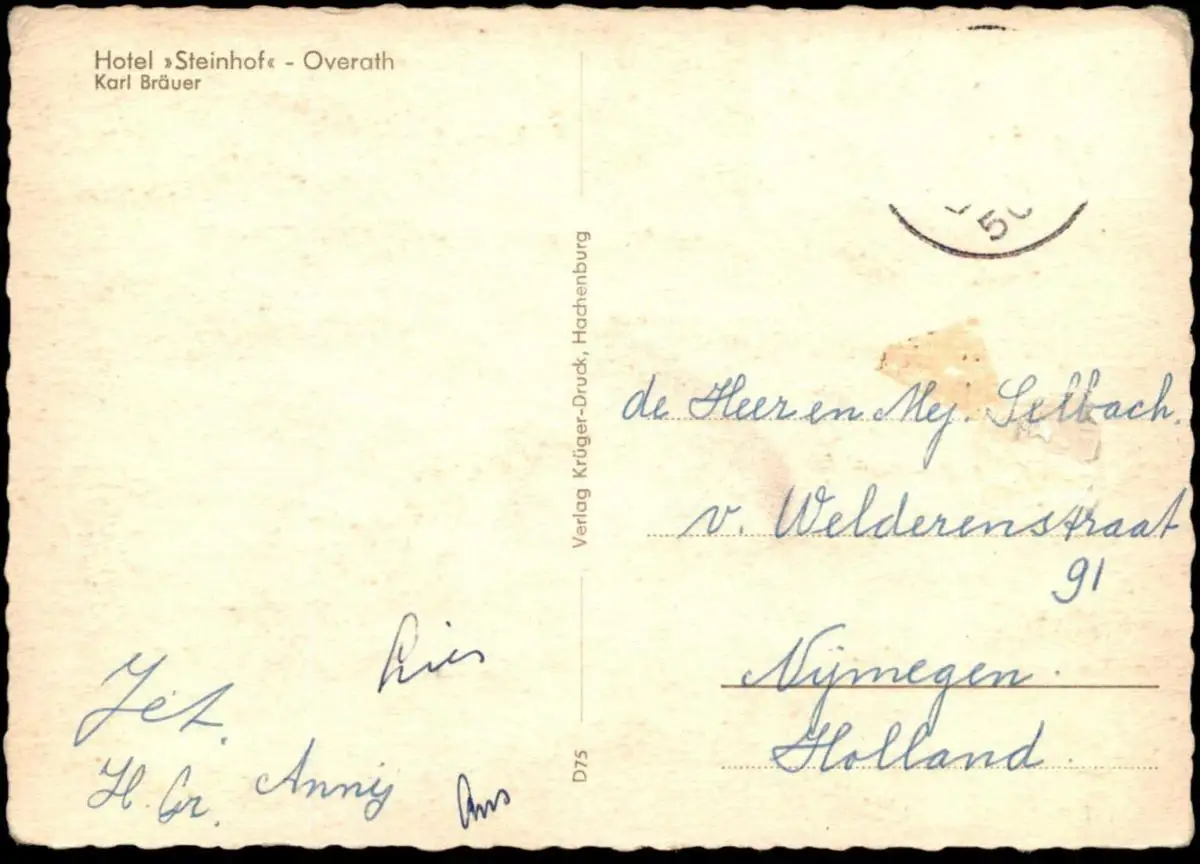 Hotel »Steinhof« - Overath
Karl Bräuer
Verlag Krüger-Druck, Hachenburg
D75
50
de Heer en Mej. Selbach.
v. Welderenstraat
91
Nijmegen.
Holland.
Lies
Jet.
H. Gr. Annij